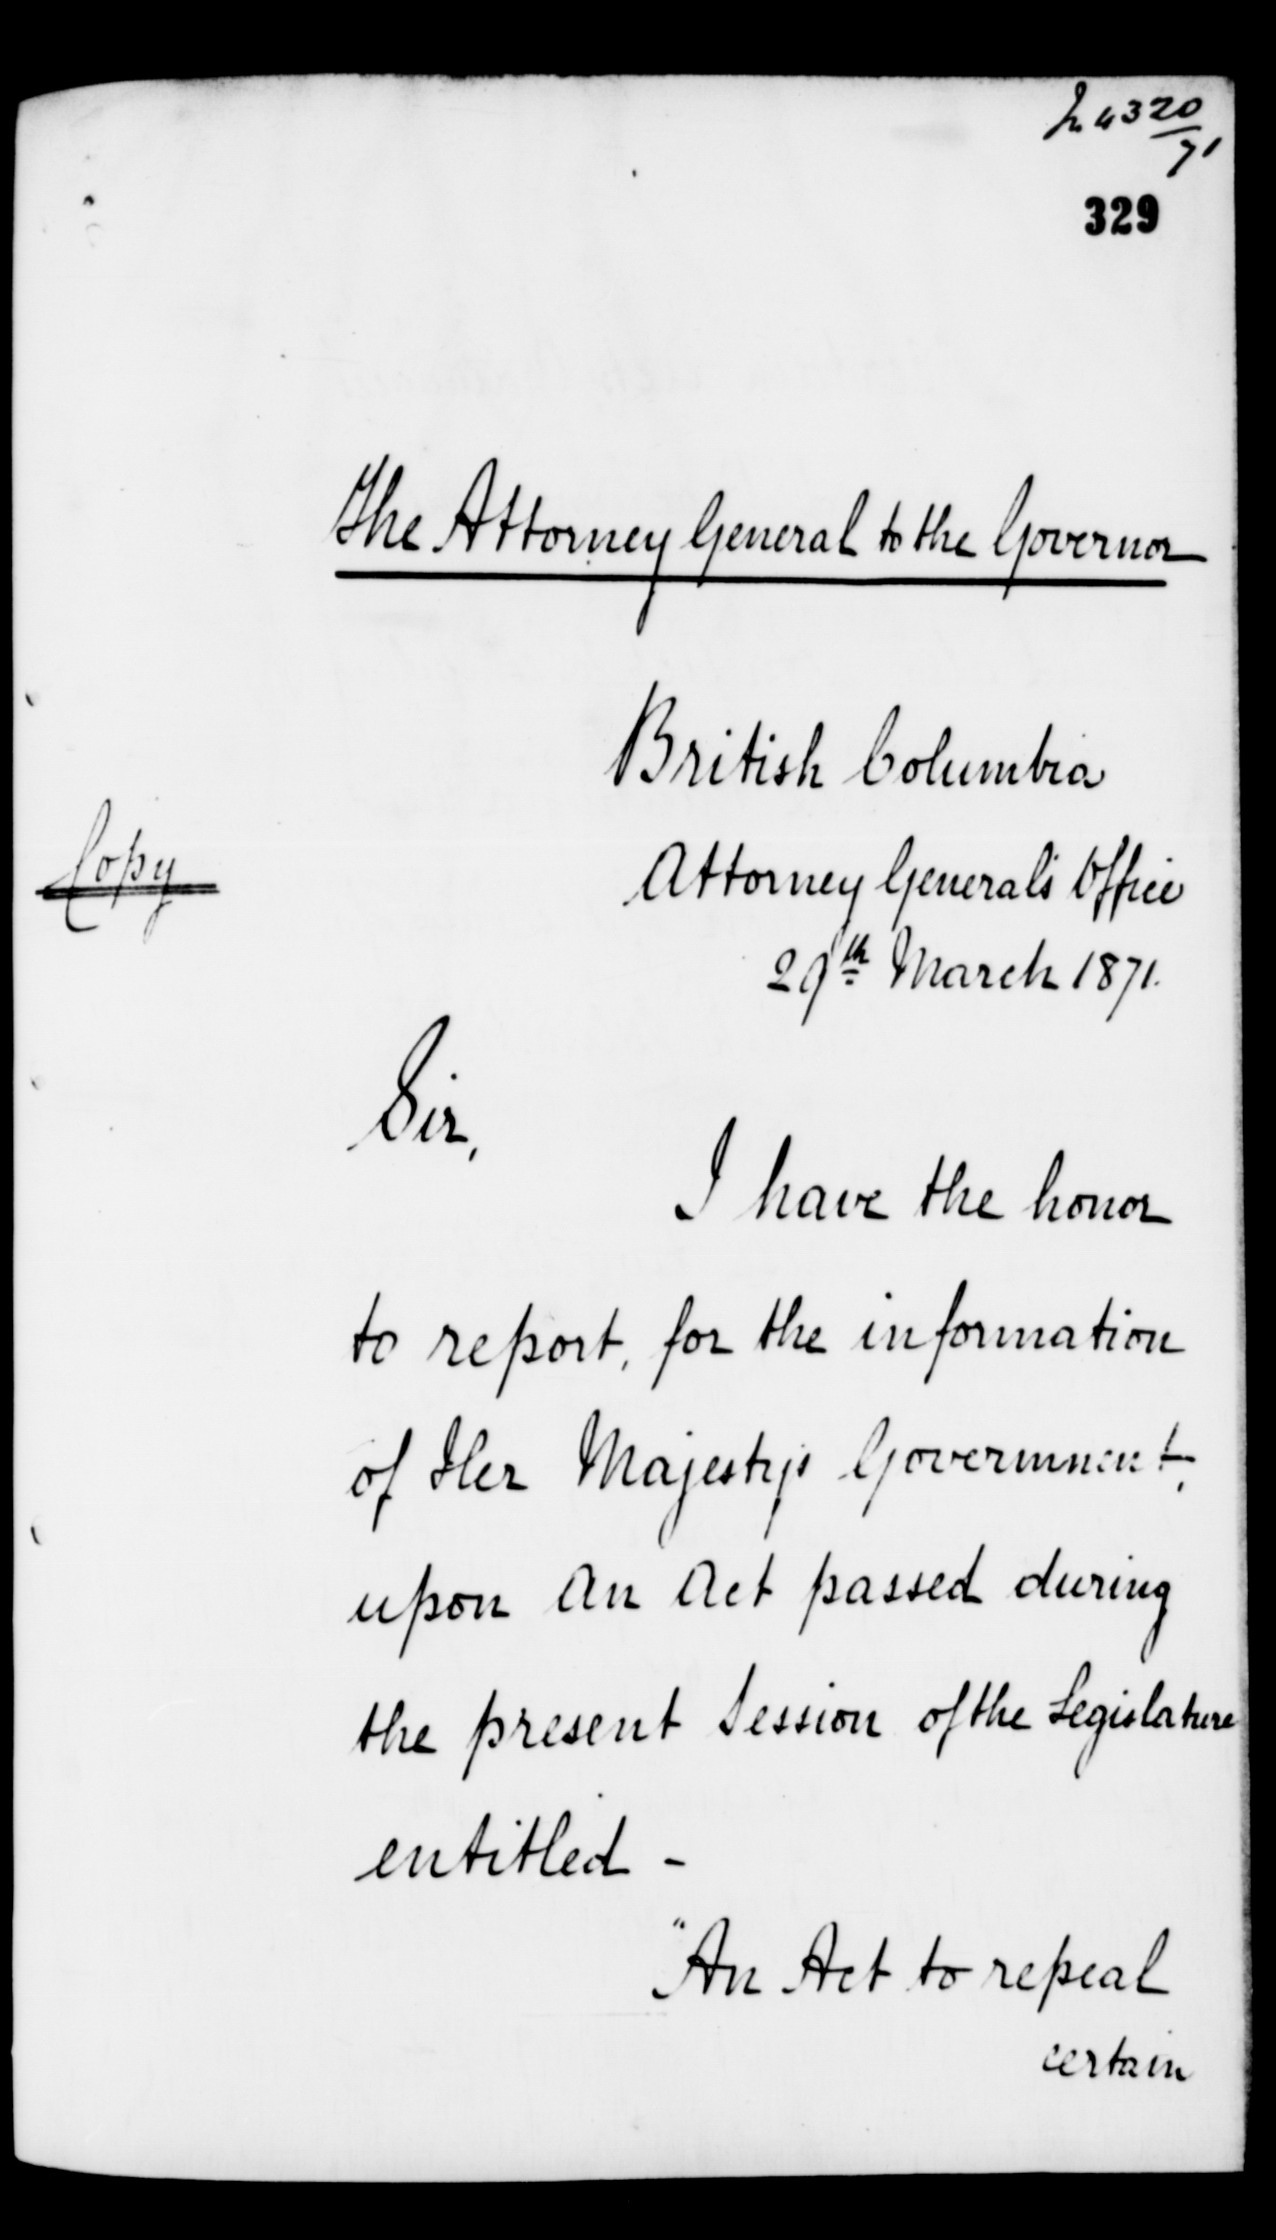 In 4320/71
329
The Attorney General to the Governor
British Columbia
Copy
Attorney General's Office
29th March 1871.
Sir,
I have the honor
to report, for the information
of Her Majesty's Government,
upon An Act passed during
the present Session of the Legislature
entitled -
"An Act to repeal
certain